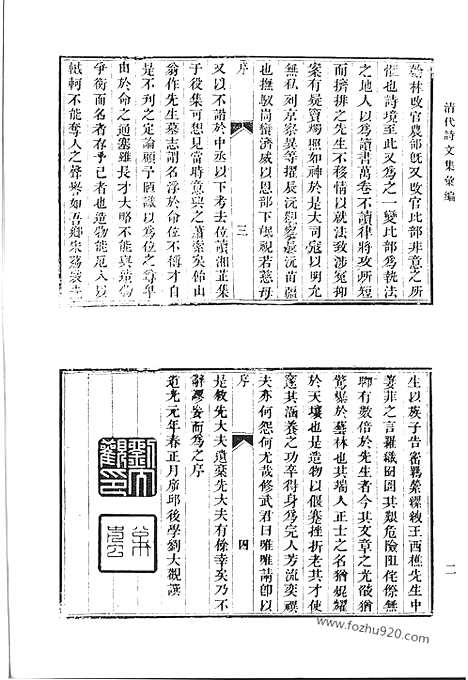 清代詩文集彙編
翰林改官農部旣又改官比部非意之所
惬也詩境至此又爲之一變比部爲執法
之地人以爲讀書萬卷不讀律將攻所短
而擠排之先生不移情以就法致涉冤抑
案有疑竇燭照如神於是大司寇以明允
無私列京察異等擢辰沅觀察辰沅苗疆
也撫馭尚嚴濟威以恩部下煖視若慈母
序 三
又以不諧於中丞以下考去位讀湘芷集
于役集可想見當時意興之蕭索矣佀山
翁作先生墓志謂名浮於命位不得才自
是不刋之定論顧予陋識以爲位之尊卑
由於命之通塞雖長才大略不能與造物
爭衡而名者存乎己者也造物能厄人以
轗軻不能奪人之聲譽如吾鄉宋荔裳先
生以族子告密羈縶縲絏王西樵先生中
萋菲之言羅織囹圄其艱危險阻侘傺無
聊有數倍於先生者今其文章之光燄猶
驚爍於藝林也其端人正士之名猶焜耀
於天壤也是造物以偃蹇挫折老其才使
邃其涵養之功卒得身爲完人芳流奕禩
夫亦何怨何尤哉修武君曰唯唯請卽以
序 四
是敘先大夫遺稾先大夫有餘幸矣乃不
辭謬妄而爲之序
道光元年春正月𢈪邱後學劉大觀譔
劉大觀印
二
www.fozhu920.com